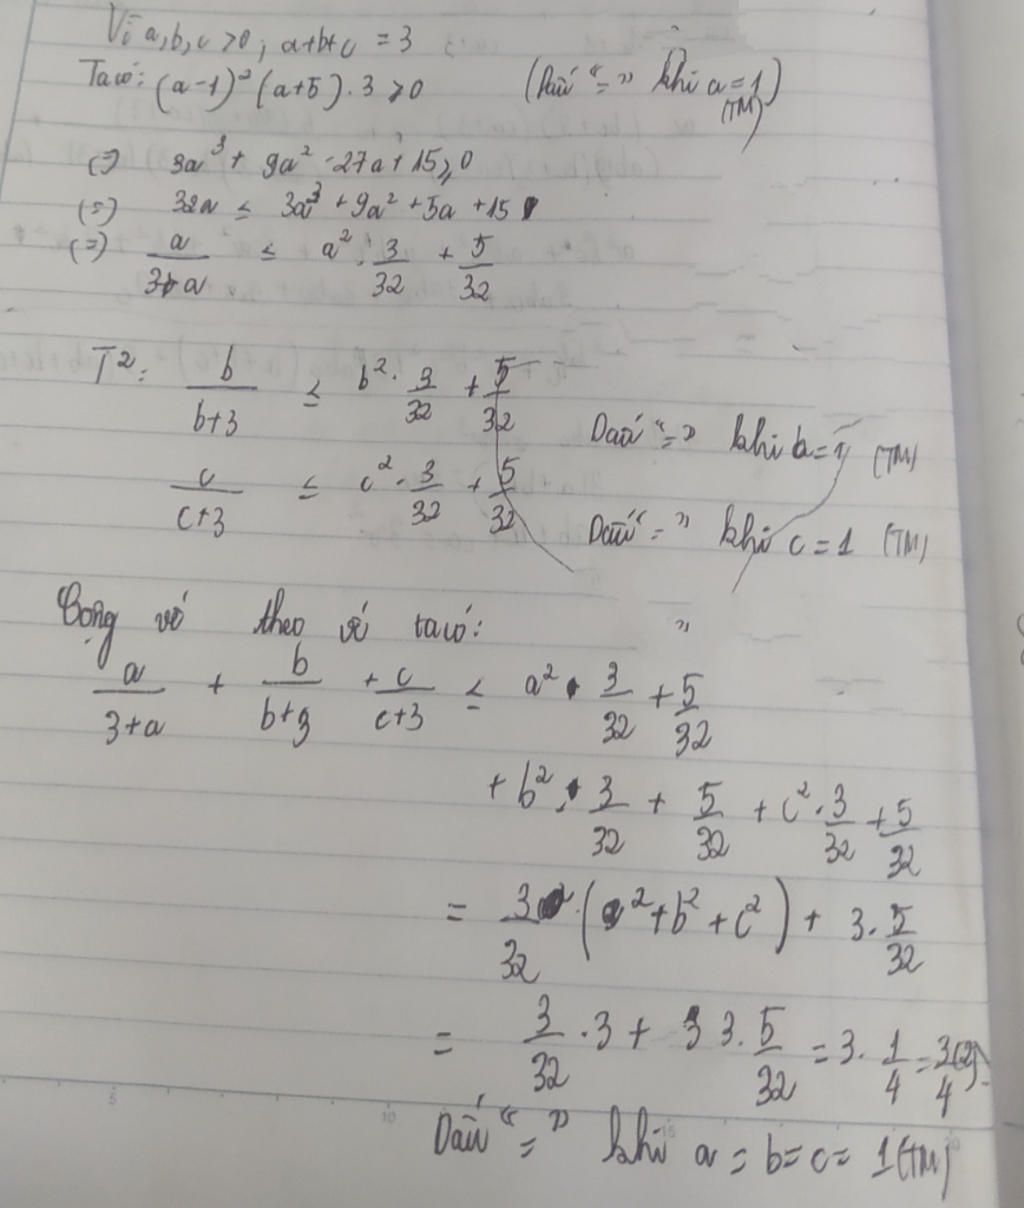 Vì a, b, c > 0; a+b+c = 3
Ta có: (a-1)² (a+5) . 3 ≥ 0 (Dấu "=" khi a=1) (TM)
(=) 3a³ + 9a² - 27a + 15 ≥ 0
(=) 32a ≤ 3a³ + 9a² + 5a + 15
(=) a/(3+a) ≤ a² . 3/32 + 5/32
T²: b/(b+3) ≤ b² . 3/32 + 5/32 Dấu "=" khi b=1 (TM)
c/(c+3) ≤ c² . 3/32 + 5/32 Dấu "=" khi c=1 (TM)
Cộng vế theo vế ta có:
a/(3+a) + b/(b+3) + c/(c+3) ≤ a² . 3/32 + 5/32
+ b² . 3/32 + 5/32 + c² . 3/32 + 5/32
= 3/32 (a² + b² + c²) + 3. 5/32
= 3/32 . 3 + 3. 5/32 = 3. 1/4 = 3/4 (2)
Dấu "=" khi a = b = c = 1 (TM)